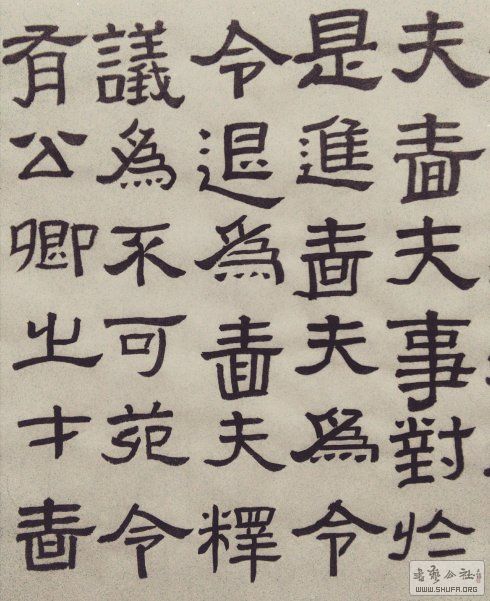 夫嗇夫事對於
是進嗇夫為令
令退為嗇夫釋
議為不可苑令
有公卿之才嗇
書藝公社
WWW.SHUFA.ORG